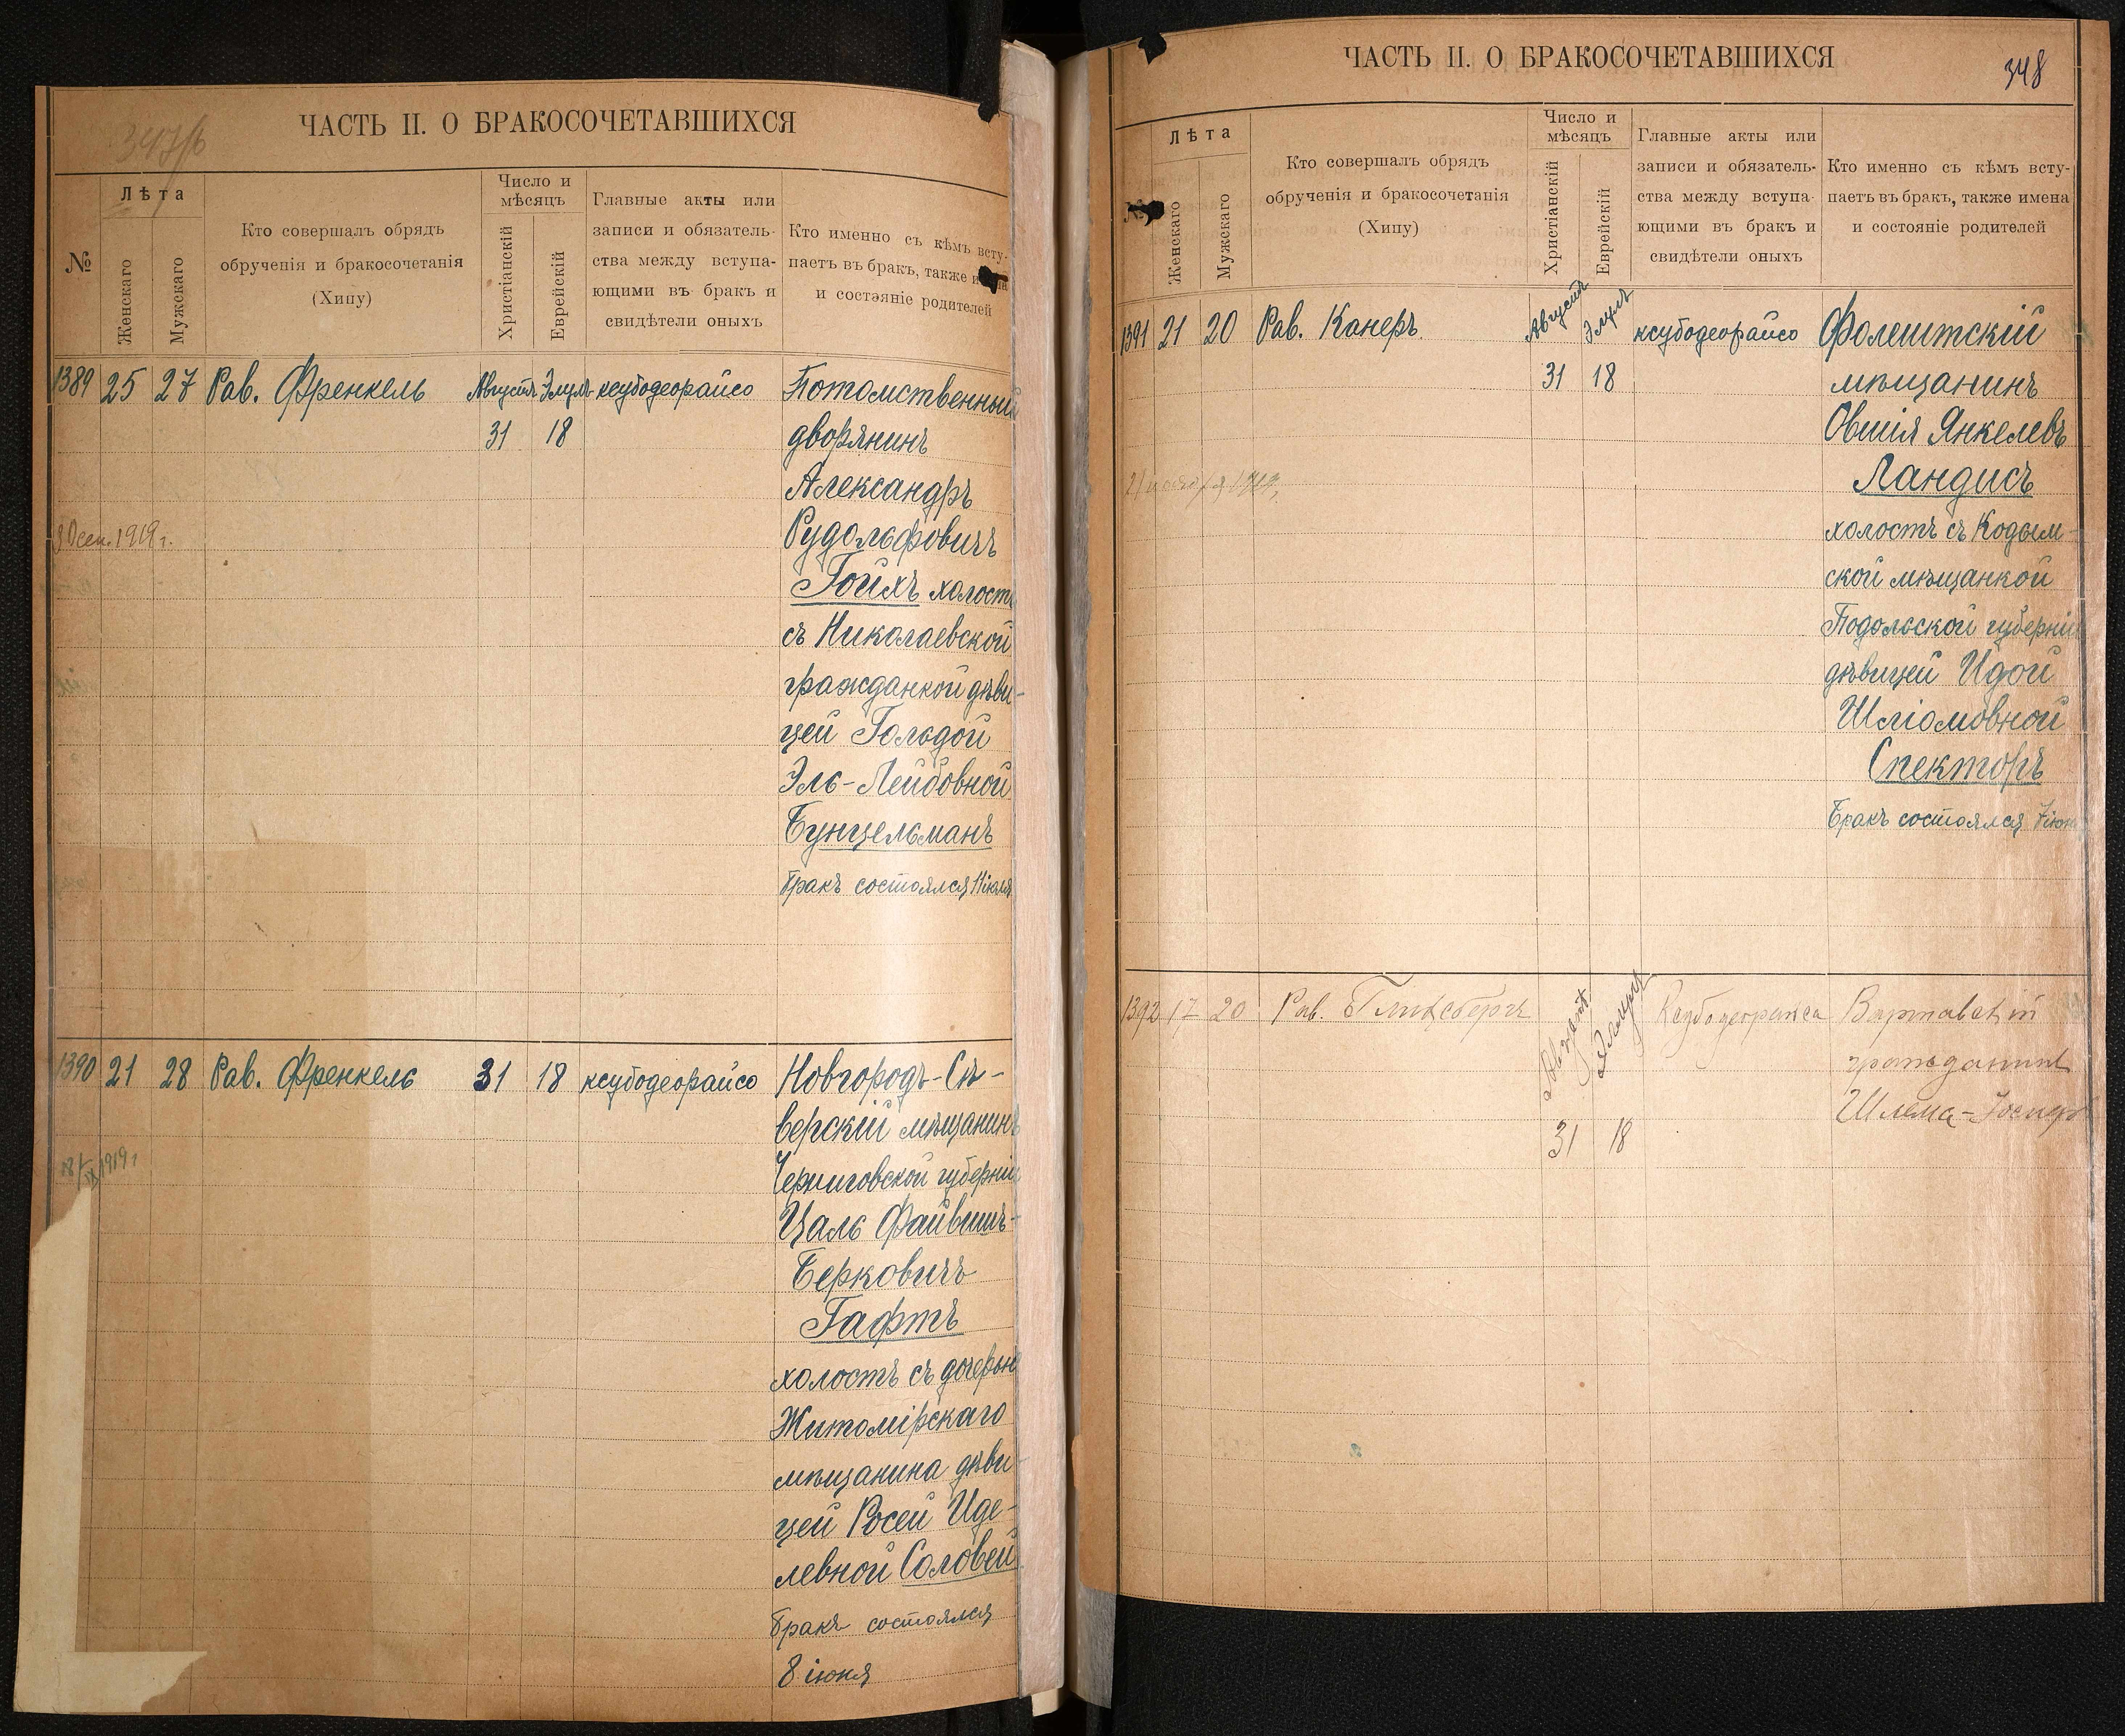 347/b
ЧАСТЬ II. О БРАКОСОЧЕТАВШИХСЯ
№
Лѣта
Женскаго
Мужскаго
Кто совершалъ обрядъ
обрученія и бракосочетанія
(Хипу)
Число и
мѣсяцъ
Христіанскій
Еврейскій
Главные акты или
записи и обязатель-
ства между вступа-
ющими въ бракъ и
свидѣтели оныхъ
Кто именно съ кѣмъ всту-
паетъ въ бракъ, также
и состояніе родителей
1389 25 27 Рав. Френкель Августъ Элулъ ксубодеорайсо Потомственный
31 18 дворянинъ
Александръ
Рудольфовичъ
сен. 1919 г.
Гойхъ холостъ
съ Николаевской
гражданкой дѣви-
цей Гольдой
Эль-Лейбовной
Бунцельманъ
Бракъ состоялся 11 іюля
1390 21 28 Рав. Френкель 31 18 ксубодеорайсо Новгородъ-Сѣ-
верскій мѣщанинъ
Черниговской губерніи
18/IX 1919 г
Цаль Файвишъ-
Берковичъ
Гафтъ
холостъ съ дочерью
Житомірскаго
мѣщанина дѣви-
цей Росей Иде-
левной Соловей
Бракъ состоялся
8 іюня
ЧАСТЬ II. О БРАКОСОЧЕТАВШИХСЯ
348
№
Лѣта
Женскаго
Мужскаго
Кто совершалъ обрядъ
обрученія и бракосочетанія
(Хипу)
Число и
мѣсяцъ
Христіанскій
Еврейскій
Главные акты или
записи и обязатель-
ства между вступа-
ющими въ бракъ и
свидѣтели оныхъ
Кто именно съ кѣмъ всту-
паетъ въ бракъ, также имена
и состояніе родителей
1391 21 20 Рав. Канеръ Августъ Элулъ ксубодеорайсо Фолештскій
31 18 мѣщанинъ
Овшія Янкелевъ
Ландисъ
1919
холостъ съ Кодым-
ской мѣщанкой
Подольской губерніи
дѣвицей Идой
Шліомовной
Спекторъ
Бракъ состоялся 7 іюня
1392 17 20 Рав. Гинсбергъ Августъ Ксубодеорайса Варшавскій
гражданинъ
Шлема-Іосифъ
31 18